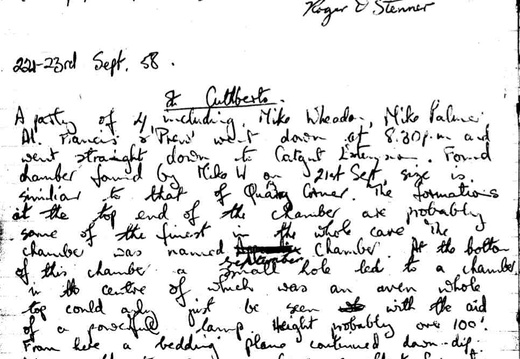 Roger D Stenner
22nd-23rd Sept. 58.
St Cuthberts.
A party of 4 including, Mike Wheadon, Mike Palmer
Al. Francis & 'Prew' went down at 8.30p.m and
went straight down to Catgut Extension. Found
chamber found by Mike W on 21st Sept, size is
similiar to that of Quarry Corner. The formations
at the top end of the chamber are probably
some of the finest in the whole cave The
chamber was named September Chamber. At the bottom
of this chamber a small hole led to a chamber
in the centre of which was an aven whole
top could only just be seen with the aid
of a powerful lamp Height probably over 100'
From here a bedding plane continued down-dip.